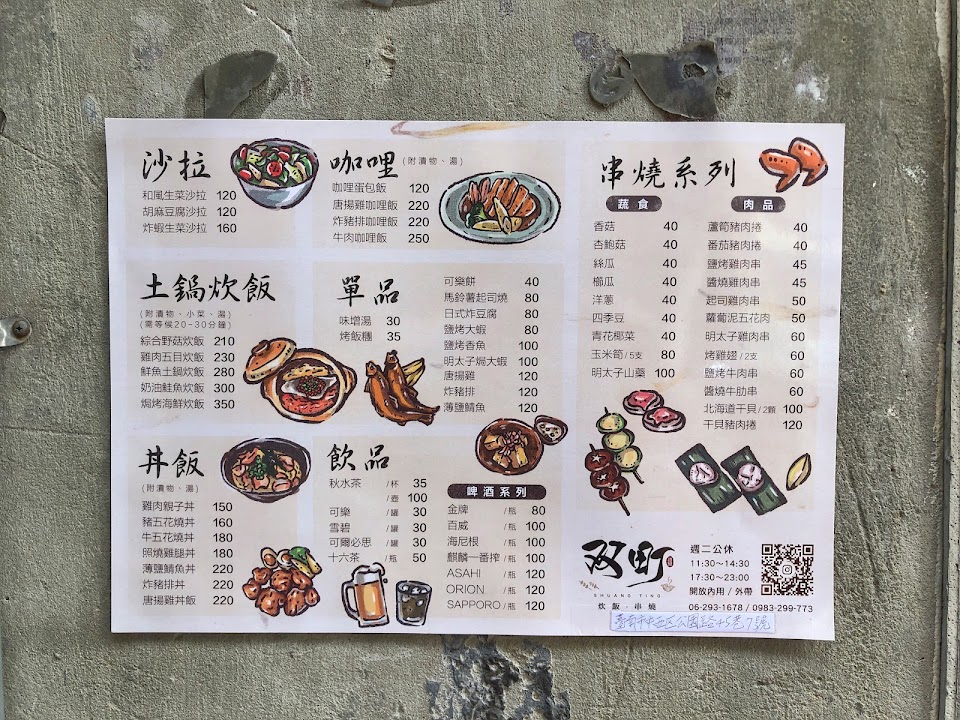 沙拉
和風生菜沙拉 120
胡麻豆腐沙拉 120
炸蝦生菜沙拉 160
咖哩 (附漬物、湯)
咖哩蛋包飯 120
唐揚雞咖哩飯 220
炸豬排咖哩飯 220
牛肉咖哩飯 250
土鍋炊飯
(附漬物、小菜、湯)
(需等候20-30分鐘)
綜合野菇炊飯 210
雞肉五目炊飯 230
鮮魚土鍋炊飯 280
奶油鮭魚炊飯 300
焗烤海鮮炊飯 350
單品
味增湯 30
烤飯糰 35
可樂餅 40
馬鈴薯起司燒 80
日式炸豆腐 80
鹽烤大蝦 80
鹽烤香魚 100
明太子焗大蝦 100
唐揚雞 120
炸豬排 120
薄鹽鯖魚 120
丼飯
(附漬物、湯)
雞肉親子丼 150
豬五花燒丼 160
牛五花燒丼 180
照燒雞腿丼 180
薄鹽鯖魚丼 220
炸豬排丼 220
唐揚雞丼飯 220
飲品
秋水茶 /杯 35
/壺 100
可樂 /罐 30
雪碧 /罐 30
可爾必思 /罐 30
十六茶 /瓶 50
啤酒系列
金牌 /瓶 80
百威 /瓶 100
海尼根 /瓶 100
麒麟一番搾 /瓶 100
ASAHI /瓶 120
ORION /瓶 120
SAPPORO /瓶 120
串燒系列
蔬食
香菇 40
杏鮑菇 40
絲瓜 40
櫛瓜 40
洋蔥 40
四季豆 40
青花椰菜 40
玉米筍/5支 80
明太子山藥 100
肉品
蘆筍豬肉捲 40
番茄豬肉捲 40
鹽烤雞肉串 45
醬燒雞肉串 45
起司雞肉串 50
蘿蔔泥五花肉 50
明太子雞肉串 60
烤雞翅/2支 60
鹽烤牛肉串 60
醬燒牛肋串 60
北海道干貝/2顆 100
干貝豬肉捲 120
双町
SHUANG TING
炊飯・串燒
週二公休
11:30～14:30
17:30～23:00
開放內用/外帶
06-293-1678 / 0983-299-773
臺南市中西區公園路45巷7號